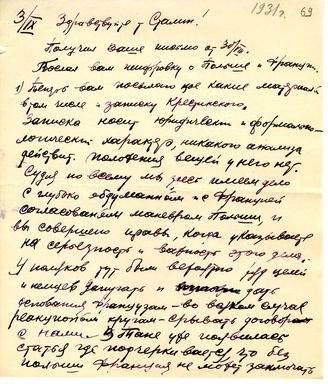 3/IX
1931 г. 69
Здравствуйте т Сталин!
Получил Ваше письмо от 30/VIII.
Послал вам шифровку о Польше и Франции.
1) Теперь вам посылаю кое какие материалы
в том числе и записку Крестинского.
Записка носит юридически и формально-
логический характер, никакого анализа
действит. положения вещей у него нет.
Судя по всему мы здесь имеем дело
с глубоко обдуманным и с Францией
согласованным маневром Польши и
вы совершенно правы, когда указываете
на серьезность и важность этого дела.
У поляков тут была вероятно цель
и немцев запугать и дать
французам – во всяком случае
реакционным кругам – срывать договор
с нами. В Тане уже появилась
статья где подчеркивается, что без
Польши Франция не может заключать